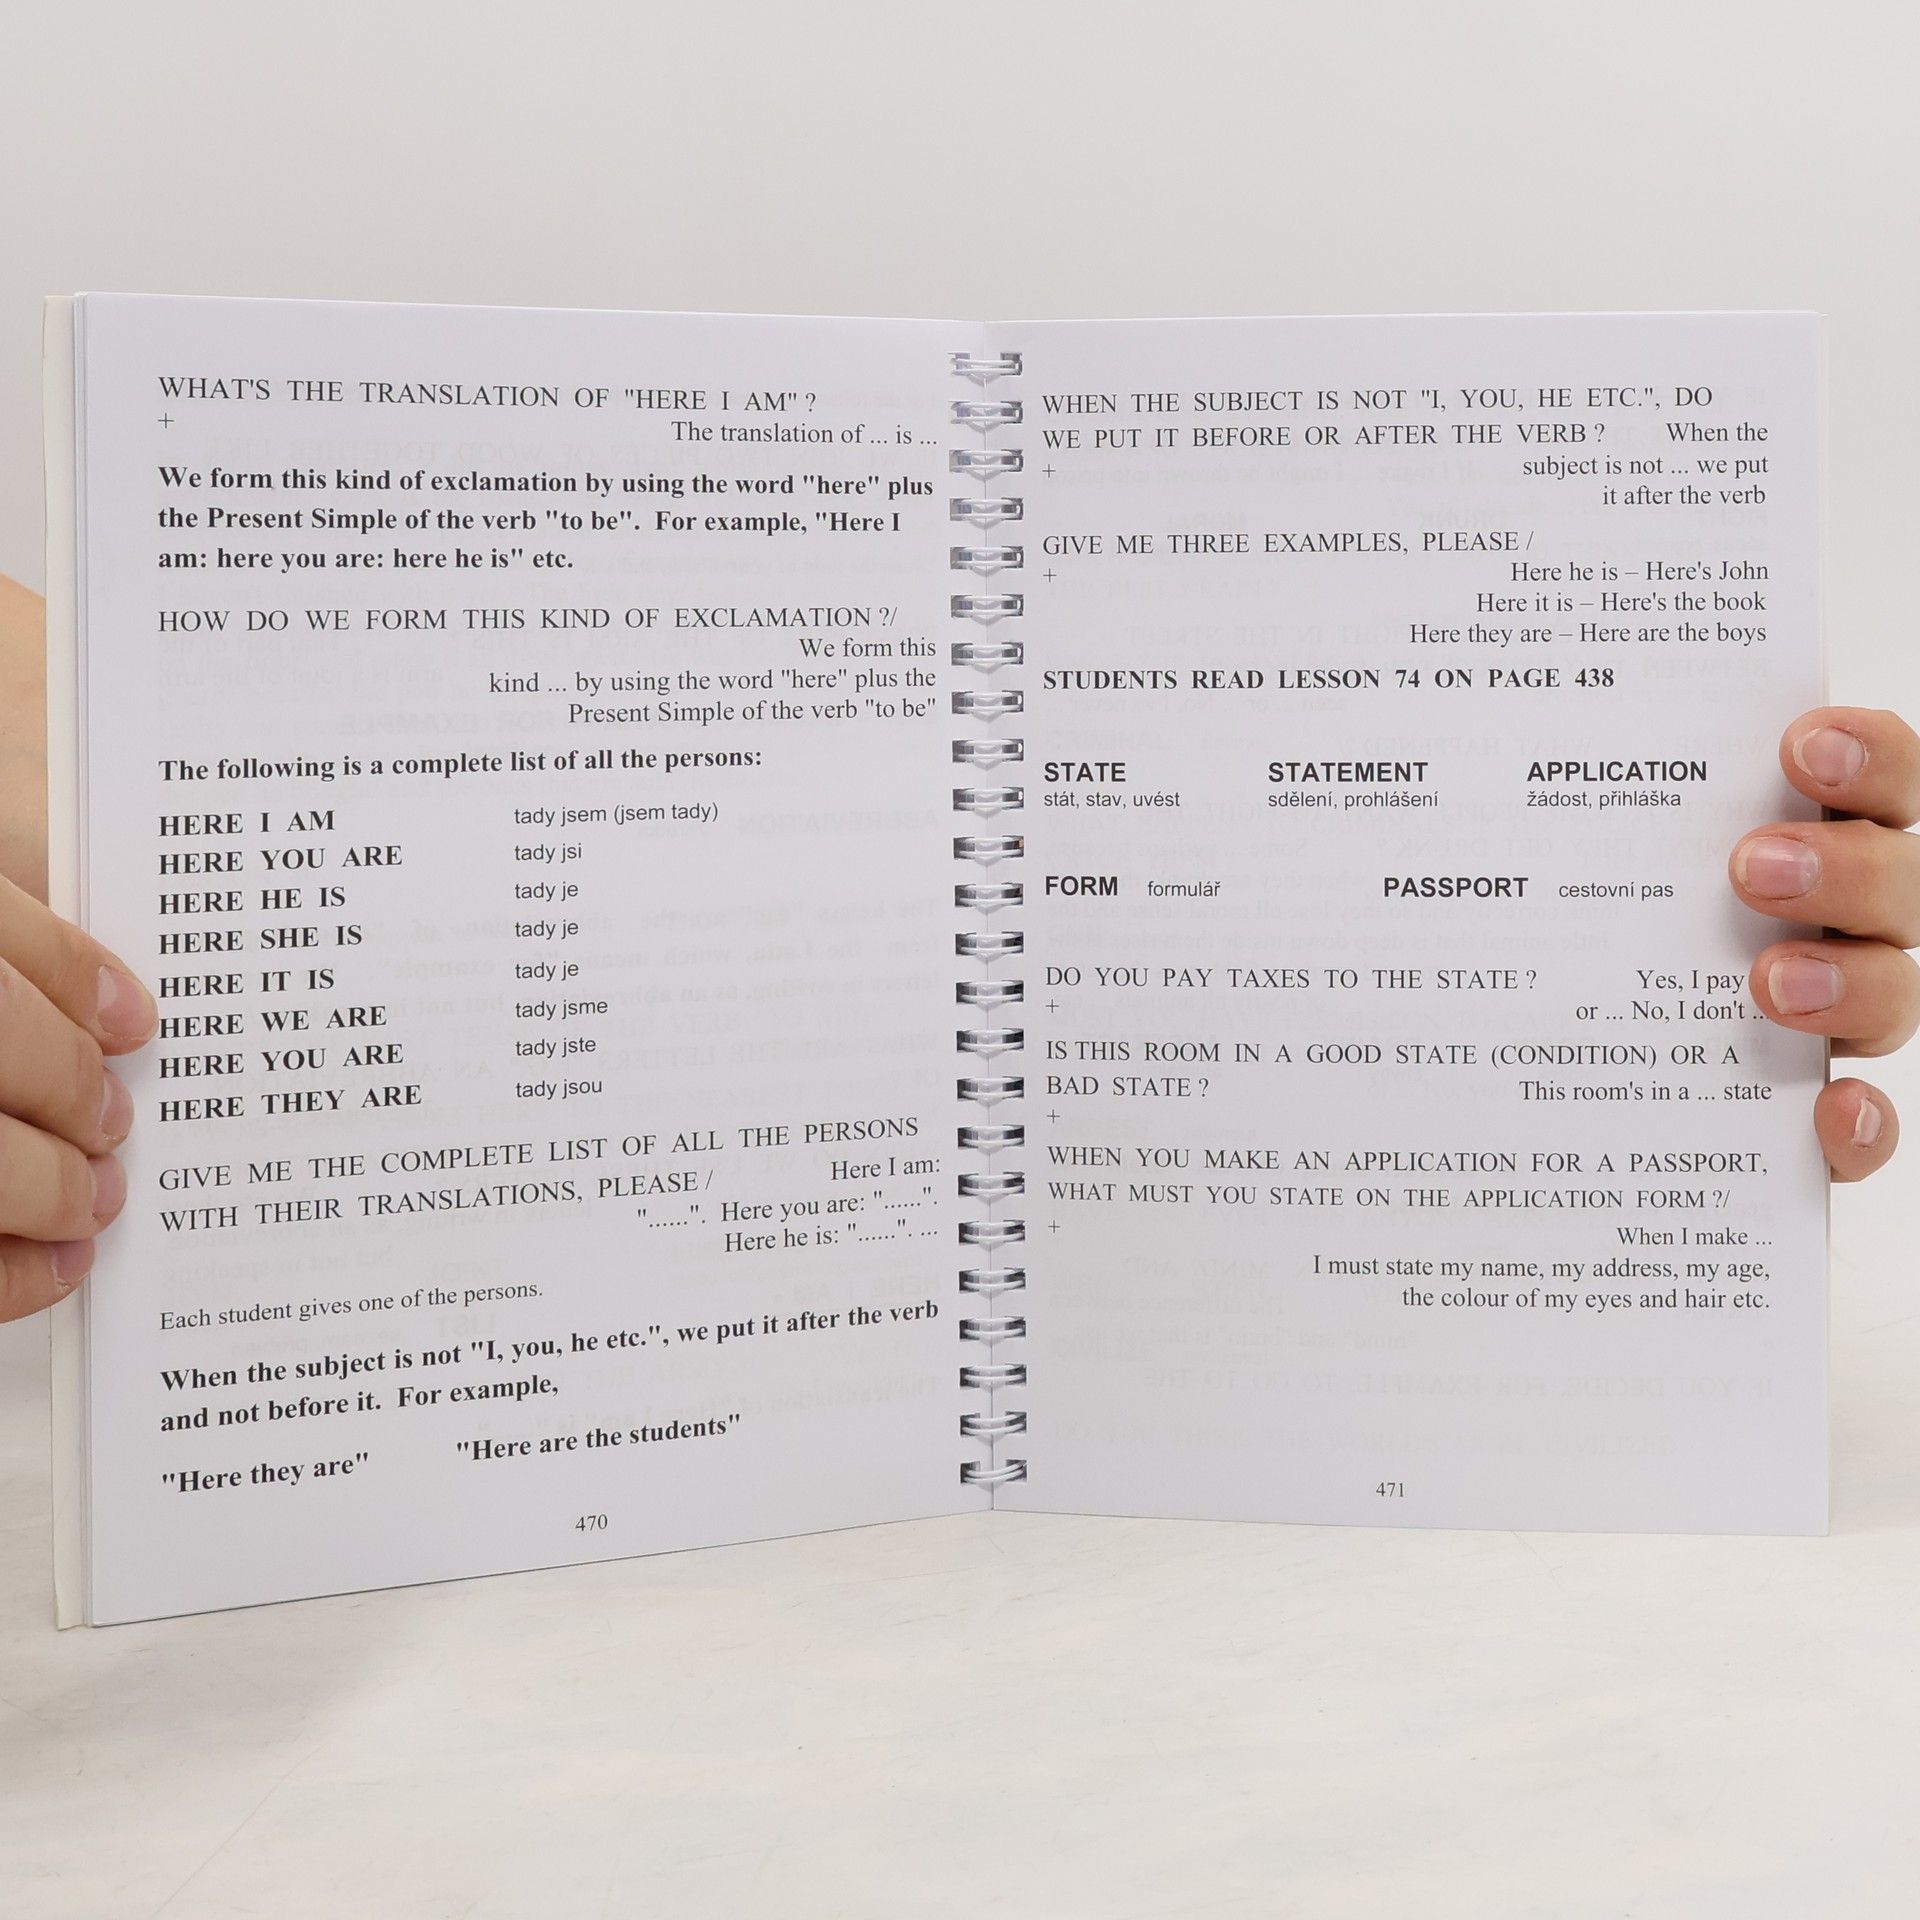 WHAT'S THE TRANSLATION OF "HERE I AM" ?
+
The translation of ... is ...
We form this kind of exclamation by using the word "here" plus
the Present Simple of the verb "to be". For example, "Here I
am: here you are: here he is" etc.
HOW DO WE FORM THIS KIND OF EXCLAMATION ?/
We form this
kind ... by using the word "here" plus the
Present Simple of the verb "to be"
The following is a complete list of all the persons:
HERE I AM tady jsem (jsem tady)
HERE YOU ARE tady jsi
HERE HE IS tady je
HERE SHE IS tady je
HERE IT IS tady je
HERE WE ARE tady jsme
HERE YOU ARE tady jste
HERE THEY ARE tady jsou
GIVE ME THE COMPLETE LIST OF ALL THE PERSONS
WITH THEIR TRANSLATIONS, PLEASE / Here I am:
"......". Here you are: "......".
Here he is: "......". ...
Each student gives one of the persons.
When the subject is not "I, you, he etc.", we put it after the verb
and not before it. For example,
"Here they are" "Here are the students"
470
WHEN THE SUBJECT IS NOT "I, YOU, HE ETC.", DO
WE PUT IT BEFORE OR AFTER THE VERB ? When the
+ subject is not ... we put
it after the verb
GIVE ME THREE EXAMPLES, PLEASE /
+ Here he is – Here's John
Here it is – Here's the book
Here they are – Here are the boys
STUDENTS READ LESSON 74 ON PAGE 438
STATE STATEMENT APPLICATION
stát, stav, uvést sdělení, prohlášení žádost, přihláška
FORM formulář PASSPORT cestovní pas
DO YOU PAY TAXES TO THE STATE ? Yes, I pay
+ or ... No, I don't ...
IS THIS ROOM IN A GOOD STATE (CONDITION) OR A
BAD STATE ? This room's in a ... state
+
WHEN YOU MAKE AN APPLICATION FOR A PASSPORT,
WHAT MUST YOU STATE ON THE APPLICATION FORM ?/
+ When I make ...
I must state my name, my address, my age,
the colour of my eyes and hair etc.
471